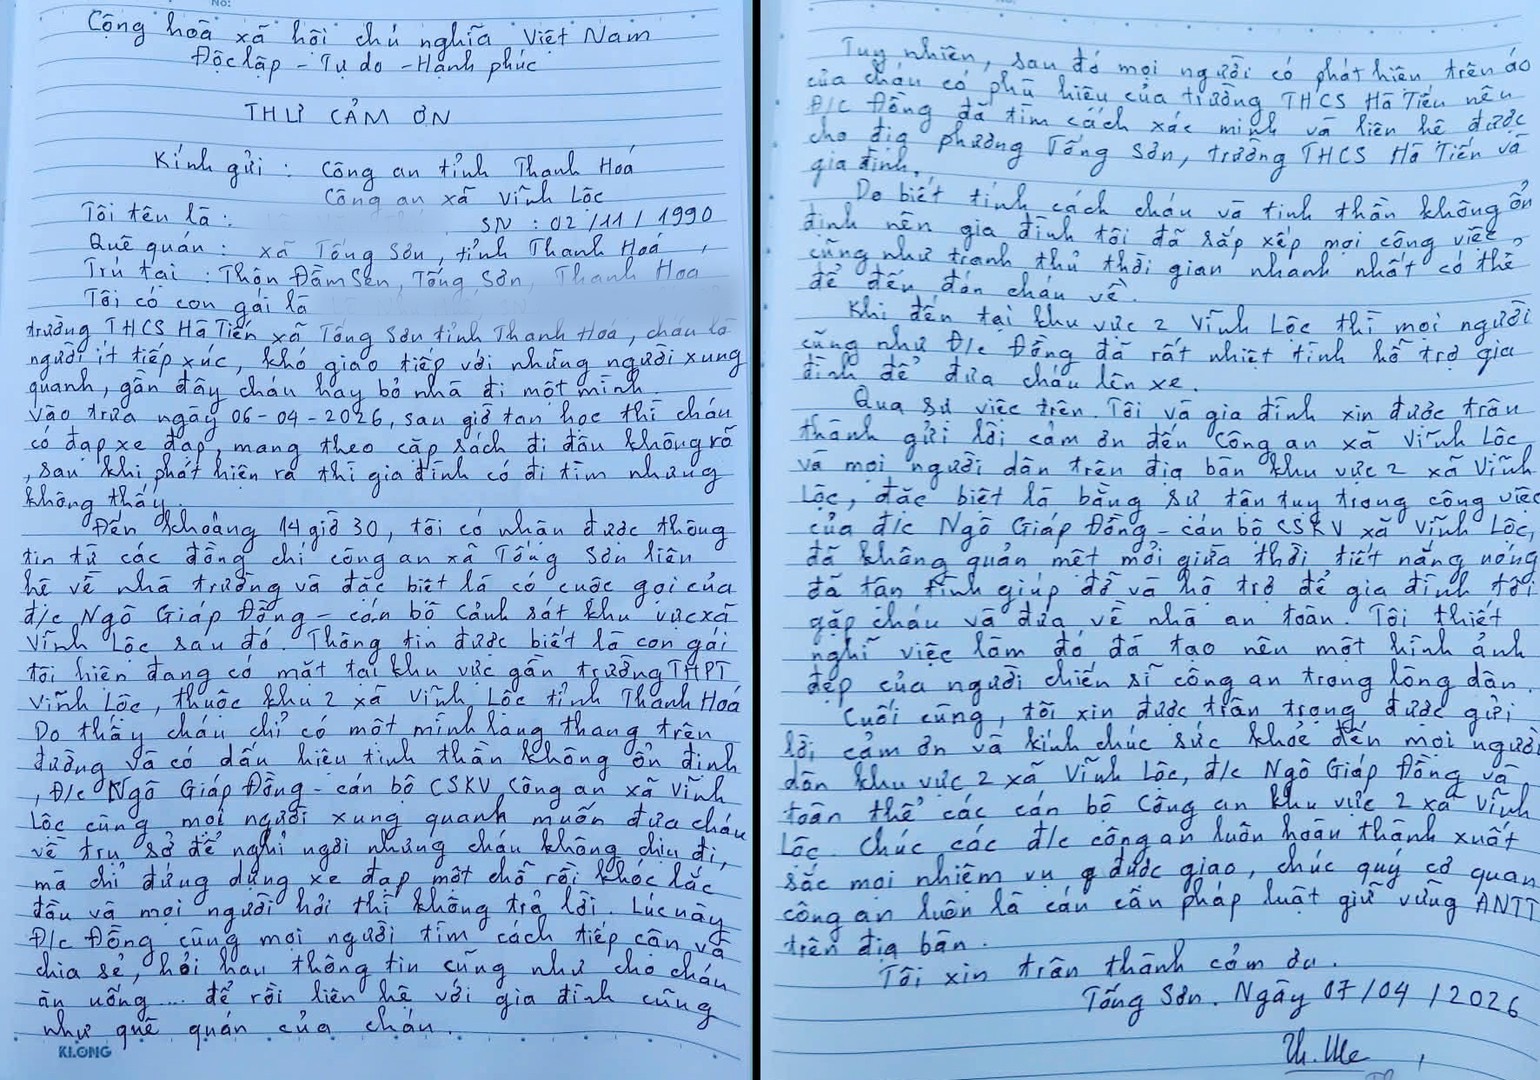 Cộng hoà xã hội chủ nghĩa Việt Nam
Độc lập - Tự do - Hạnh phúc
THƯ CẢM ƠN
Kính gửi : Công an tỉnh Thanh Hoá
Công an xã Vĩnh Lộc
Tôi tên là : SN : 02/11/1990
Quê quán : xã Tống Sơn, tỉnh Thanh Hoá,
Trú tại : Thôn Đầm Sen, Tống Sơn, Thanh Hoa
Tôi có con gái là
trường THCS Hà Tiến xã Tống Sơn tỉnh Thanh Hoá, cháu là
người ít tiếp xúc, khó giao tiếp với những người xung
quanh, gần đây cháu hay bỏ nhà đi một mình.
Vào trưa ngày 06-04-2026, sau giờ tan học thì cháu
có đạp xe đạp, mang theo cặp sách đi đâu không rõ
, sau khi phát hiện ra thì gia đình có đi tìm nhưng
không thấy.
Đến khoảng 14 giờ 30, tôi có nhận được thông
tin từ các đồng chí công an xã Tống Sơn liên
hệ về nhà trường và đặc biệt là có cuộc gọi của
đ/c Ngô Giáp Đồng - cán bộ Cảnh sát khu vực xã
Vĩnh Lộc sau đó. Thông tin được biết là con gái
tôi hiện đang có mặt tại khu vực gần trường THPT
Vĩnh Lộc, thuộc khu 2 xã Vĩnh Lộc tỉnh Thanh Hoá
Do thấy cháu chỉ có một mình lang thang trên
đường và có dấu hiệu tinh thần không ổn định
, Đ/c Ngô Giáp Đồng - cán bộ CSKV Công an xã Vĩnh
Lộc cùng mọi người xung quanh muốn đưa cháu
về trụ sở để nghỉ ngơi nhưng cháu không chịu đi,
mà chỉ đứng dựng xe đạp một chỗ rồi khóc lắc
đầu và mọi người hỏi thì không trả lời. Lúc này
Đ/c Đồng cùng mọi người tìm cách tiếp cận và
chia sẻ, hỏi han thông tin cũng như cho cháu
ăn uống ... để rồi liên hệ với gia đình cũng
như quê quán của cháu.
KLONG
Tuy nhiên, sau đó mọi người có phát hiện trên áo
của cháu có phù hiệu của trường THCS Hà Tiến nên
Đ/c Đồng đã tìm cách xác minh và liên hệ được
cho địa phương Tống Sơn, trường THCS Hà Tiến và
gia đình.
Do biết tính cách cháu và tinh thần không ổn
định nên gia đình tôi đã sắp xếp mọi công việc
cũng như tranh thủ thời gian nhanh nhất có thể
để đến đón cháu về.
Khi đến tại khu vực 2 Vĩnh Lộc thì mọi người
cũng như Đ/c Đồng đã rất nhiệt tình hỗ trợ gia
đình để đưa cháu lên xe.
Qua sự việc trên. Tôi và gia đình xin được trân
thành gửi lời cảm ơn đến Công an xã Vĩnh Lộc
và mọi người dân trên địa bàn khu vực 2 xã Vĩnh
Lộc, đặc biệt là bằng sự tận tụy trong công việc
của đ/c Ngô Giáp Đồng - cán bộ CSKV xã Vĩnh Lộc,
đã không quản mệt mỏi giữa thời tiết nắng nóng
đã tận tình giúp đỡ và hỗ trợ để gia đình tôi
gặp cháu và đưa về nhà an toàn. Tôi thiết
nghĩ việc làm đó đã tạo nên một hình ảnh
đẹp của người chiến sĩ công an trong lòng dân.
Cuối cùng, tôi xin được trân trọng được gửi
lời cảm ơn và kính chúc sức khoẻ đến mọi người
dân khu vực 2 xã Vĩnh Lộc, đ/c Ngô Giáp Đồng và
toàn thể các cán bộ Công an khu vực 2 xã Vĩnh
Lộc. Chúc các đ/c công an luôn hoàn thành xuất
sắc mọi nhiệm vụ được giao, chúc quý cơ quan
công an luôn là cán cân pháp luật giữ vững ANTT
trên địa bàn.
Tôi xin trân thành cảm ơn.
Tống Sơn. Ngày 07/04/2026